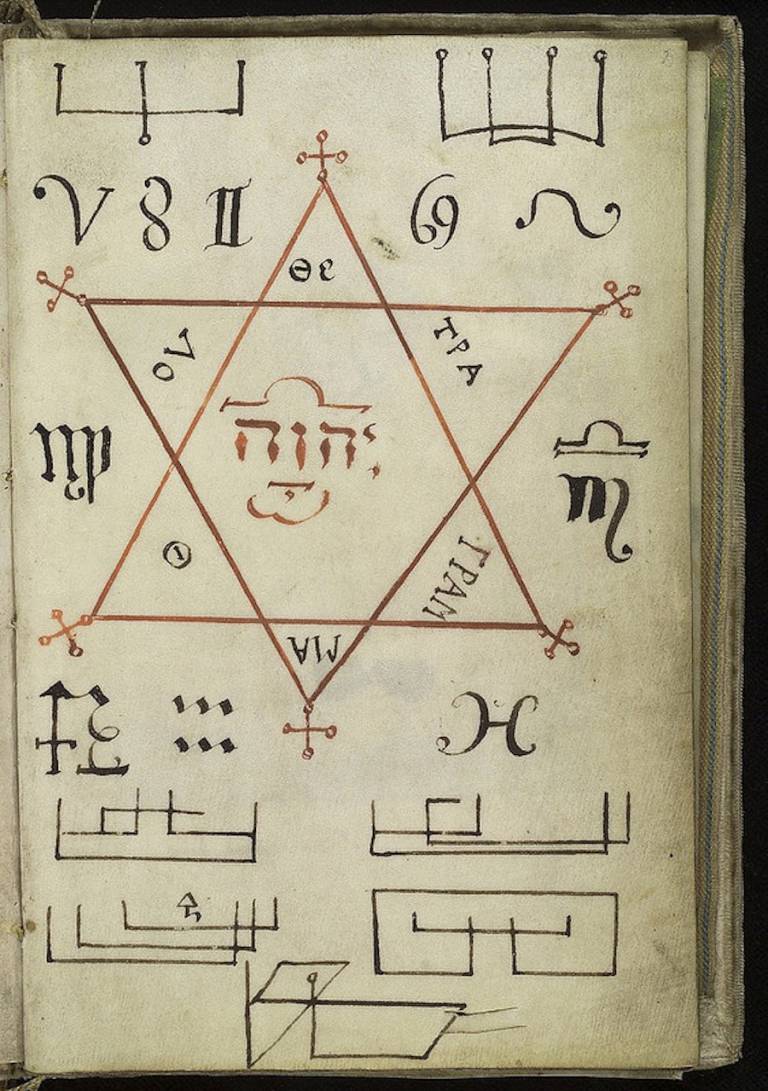 ♈ ♉ ♊ ♋ ♌
Θε
ΤΡΑ
יהוה
♍ ♎
♏
Θ
ΓΡΑΜ
ΜΑ
♐ ♑ ♒ ♓